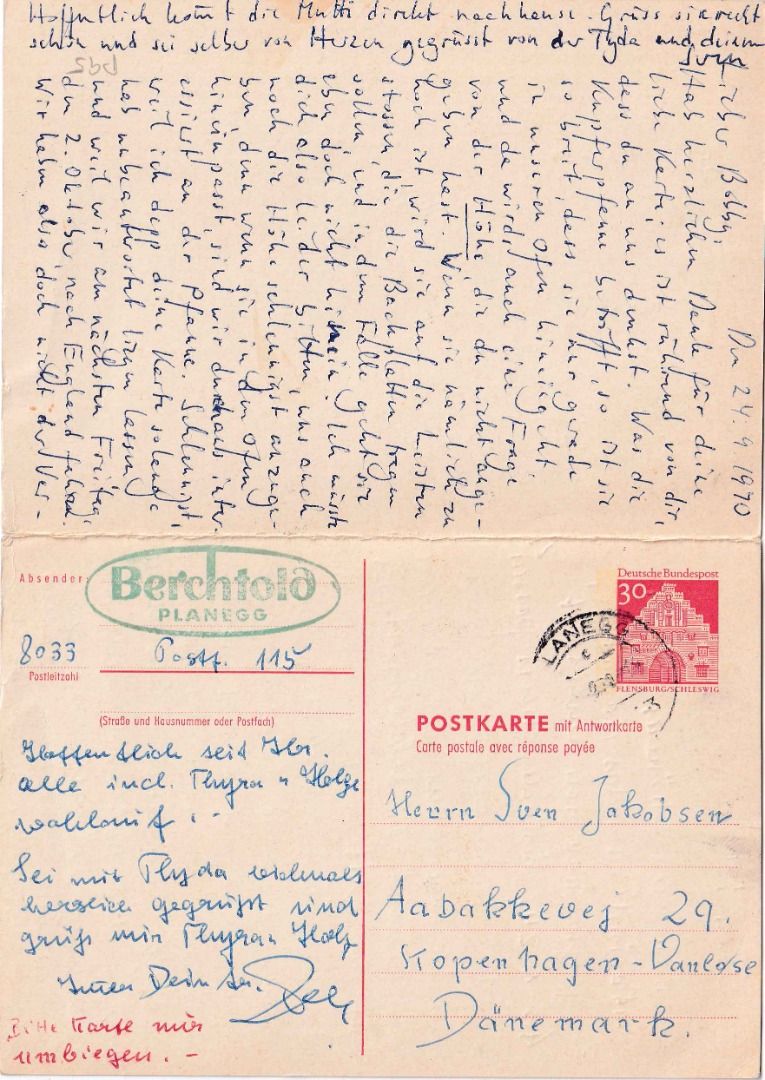 Hoffentlich kommt die Mutti direkt nachhause. Grüss sie recht
schön und sei selber von Herzen gegrüsst von der Tyda und deinem
Sven
Den 24.9 1970
Lieber Bobby,
Hab herzlichen Dank für deine
liebe Karte; es ist rührend von dir
dass du an uns denkst. Was die
Kupferpfanne betrifft, so ist sie
so breit, dass sie nur gerade
in unseren Ofen hineingeht
und da wird's auch eine Frage
von der Höhe die du nicht ange-
geben hast. Wenn sie nämlich zu
hoch ist, wird sie auf die Leisten
stossen, die die Backplatten tragen
sollen, und in dem Falle geht sie
eben doch nicht hinein. Ich müsste
dich also leider bitten, uns auch
noch die Höhe schleunigst anzuge-
ben, denn wenn sie in den Ofen
hineinpasst, sind wir durchaus inter-
essiert an der Pfanne. Schleunigst,
weil ich Depp deine Karte so lange
hab unbeantwortet liegen lassen
und weil wir am nächsten Freitag,
den 2. Oktober, nach England fahren.
Wir haben also doch nicht der Ver-
Absender:
Berchtold
PLANEGG
8033 Postf. 115
Postleitzahl
(Straße und Hausnummer oder Postfach)
Deutsche Bundespost
30
FLENSBURG/SCHLESWIG
LANEGG
POSTKARTE mit Antwortkarte
Carte postale avec réponse payée
Hoffentlich seit Ihr
alle incl. Thyra u Holge
wohlauf. -
Sei mit Thyda vielmals
herzlich gegrüßt und
grüß mir Thyra u Holg
Immer Dein
Bitte Karte nur
umbiegen. -
Herrn Sven Jakobsen
Aabakkevej 29.
Kopenhagen-Vanløse
Dänemark.